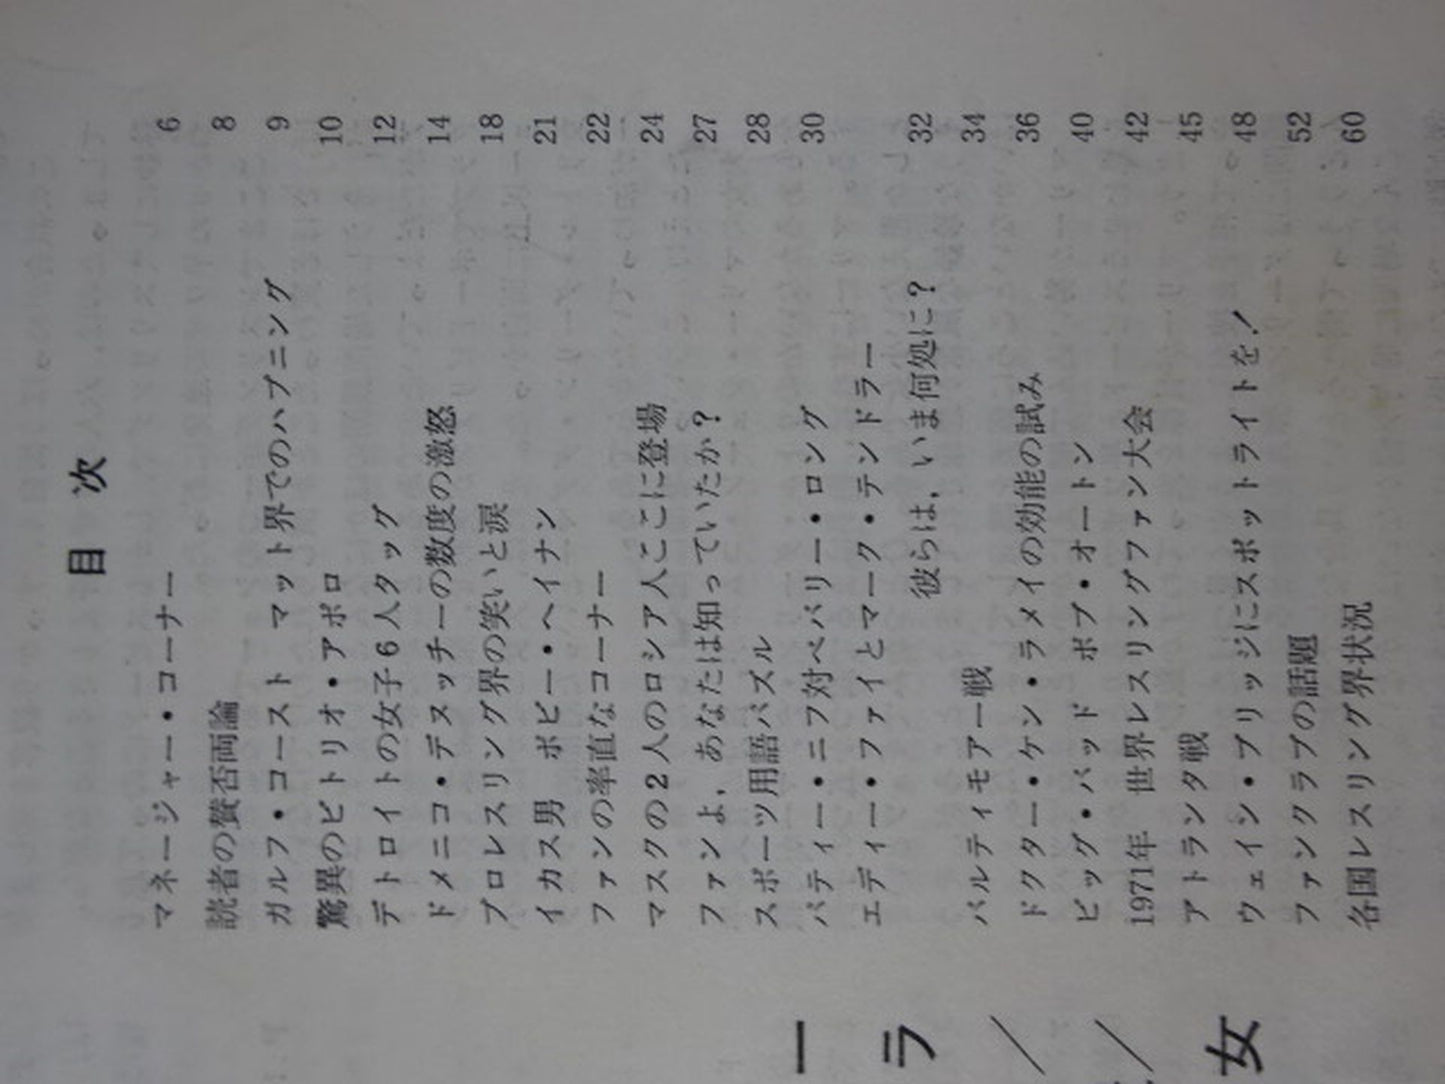 目次
マネージャー・コーナー 6
読者の賛否両論 8
ガルフ・コースト マット界でのハプニング 9
驚異のビトリオ・アポロ 10
デトロイトの女子6人タッグ 12
ドメニコ・デヌッチーの数度の激怒 14
プロレスリング界の笑いと涙 18
イカス男 ボビー・ヘイナン 21
ファンの率直なコーナー 22
マスクの2人のロシア人ここに登場 24
ファンよ，あなたは知っていたか？ 27
スポーツ用語パズル 28
パティー・ニフ対ベバリー・ロング 30
エディー・ファイとマーク・テンドラー
彼らは，いま何処に？ 32
バルティモアー戦 34
ドクター・ケン・ラメイの効能の試み 36
ビッグ・バッド ボブ・オートン 40
1971年 世界レスリングファン大会 42
アトランタ戦 45
ウェイン・ブリッジにスポットライトを！ 48
ファンクラブの話題 52
各国レスリング界状況 60
ー
ラ
／
／
女